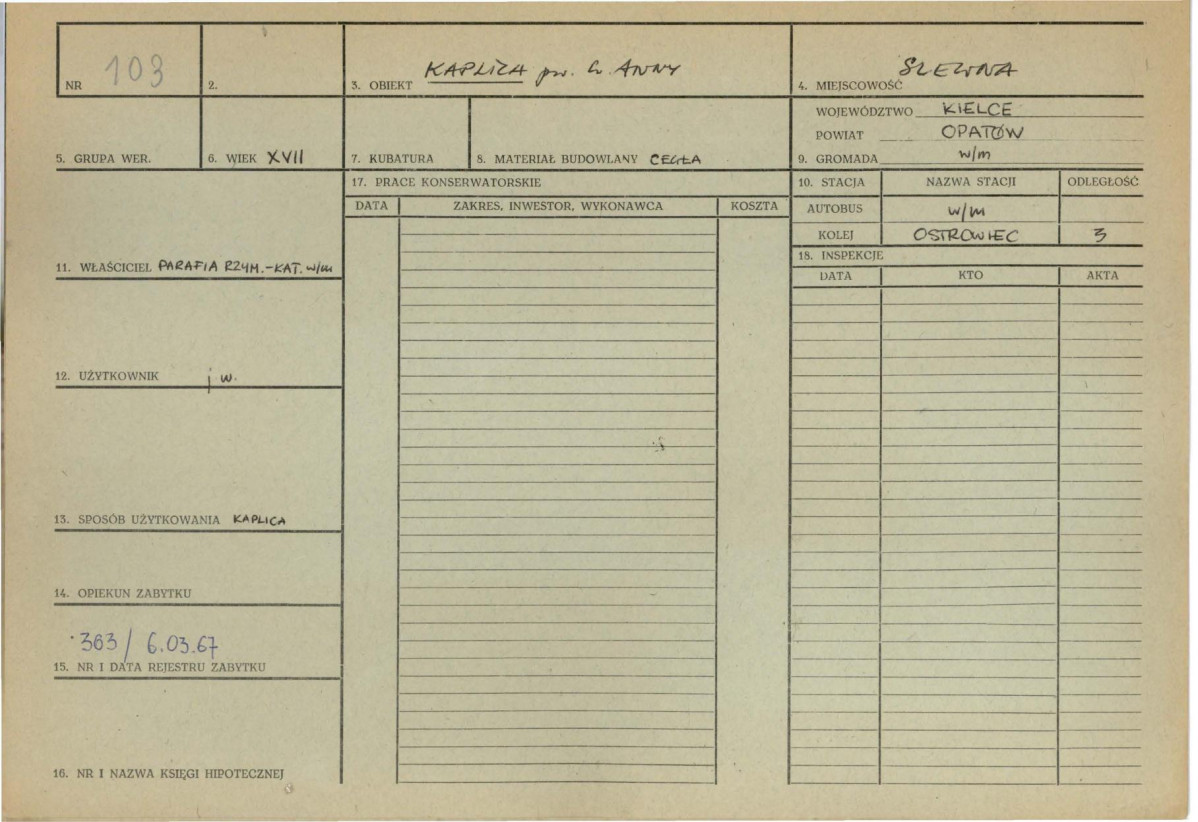 NR 103
2.
3. OBIEKT KAPLICA pw. św. ANNY
4. MIEJSCOWOŚĆ SZEWNA
WOJEWÓDZTWO KIELCE
POWIAT OPATÓW
9. GROMADA w/m
5. GRUPA WER.
6. WIEK XVII
7. KUBATURA
8. MATERIAŁ BUDOWLANY CEGŁA
17. PRACE KONSERWATORSKIE
DATA ZAKRES, INWESTOR, WYKONAWCA KOSZTA
10. STACJA NAZWA STACJI ODLEGŁOŚĆ
AUTOBUS w/m
KOLEJ OSTROWIEC 3
18. INSPEKCJE
DATA KTO AKTA
11. WŁAŚCICIEL PARAFIA RZYM.-KAT. w/m
12. UŻYTKOWNIK j w.
13. SPOSÓB UŻYTKOWANIA KAPLICA
14. OPIEKUN ZABYTKU
363/ 6.03.67
15. NR I DATA REJESTRU ZABYTKU
16. NR I NAZWA KSIĘGI HIPOTECZNEJ